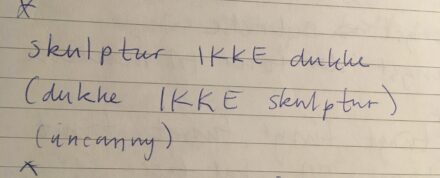 *
skulptur IKKE dukke
(dukke IKKE skulptur)
(uncanny)
*